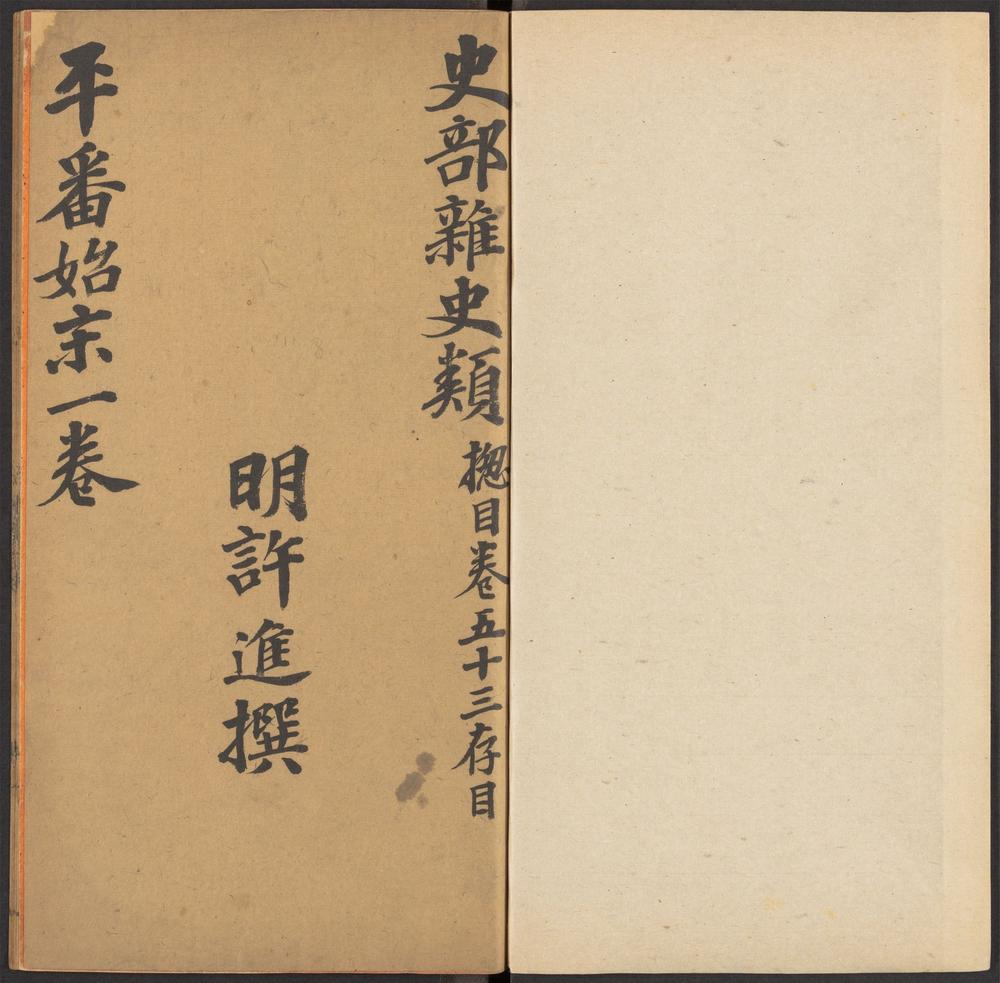 史部雜史類 揔目卷五十三存目
明許進撰
平番始末一卷